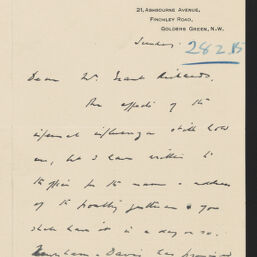 21, ASHBOURNE AVENUE,
FINCHLEY ROAD,
GOLDERS GREEN, N.W.
Sunday. 28 2 15
Dear Mr. Grant Richards,
The effects of the
infernal influenza still hold
me, but I have written to
the office for the name & address
of the poultry gentleman & you
shall have it in a day or so.
Davis has promised